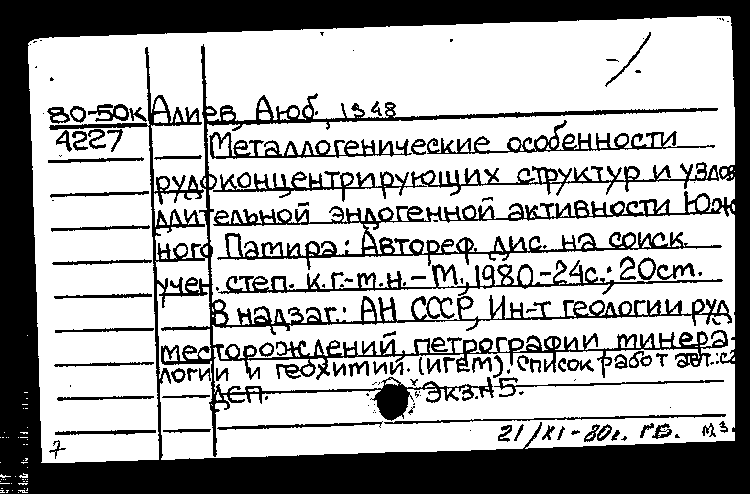 80-50к Алиев, Аюб, 1948
4227 Металлогенические особенности
рудоконцентрирующих структур и узлов
длительной эндогенной активности Юж-
ного Памира: Автореф. дис. на соиск.
учен. степ. к.г.-м.н. - М., 1980.-24с.; 20см.
В надзаг.: АН СССР, Ин-т геологии руд.
месторождений, петрографии, минера-
логии и геохимии. (ИГЕМ). Список работ авт.:с
ДСП. Экз.№5.
21/XI-80г. ГБ. м.з.
7